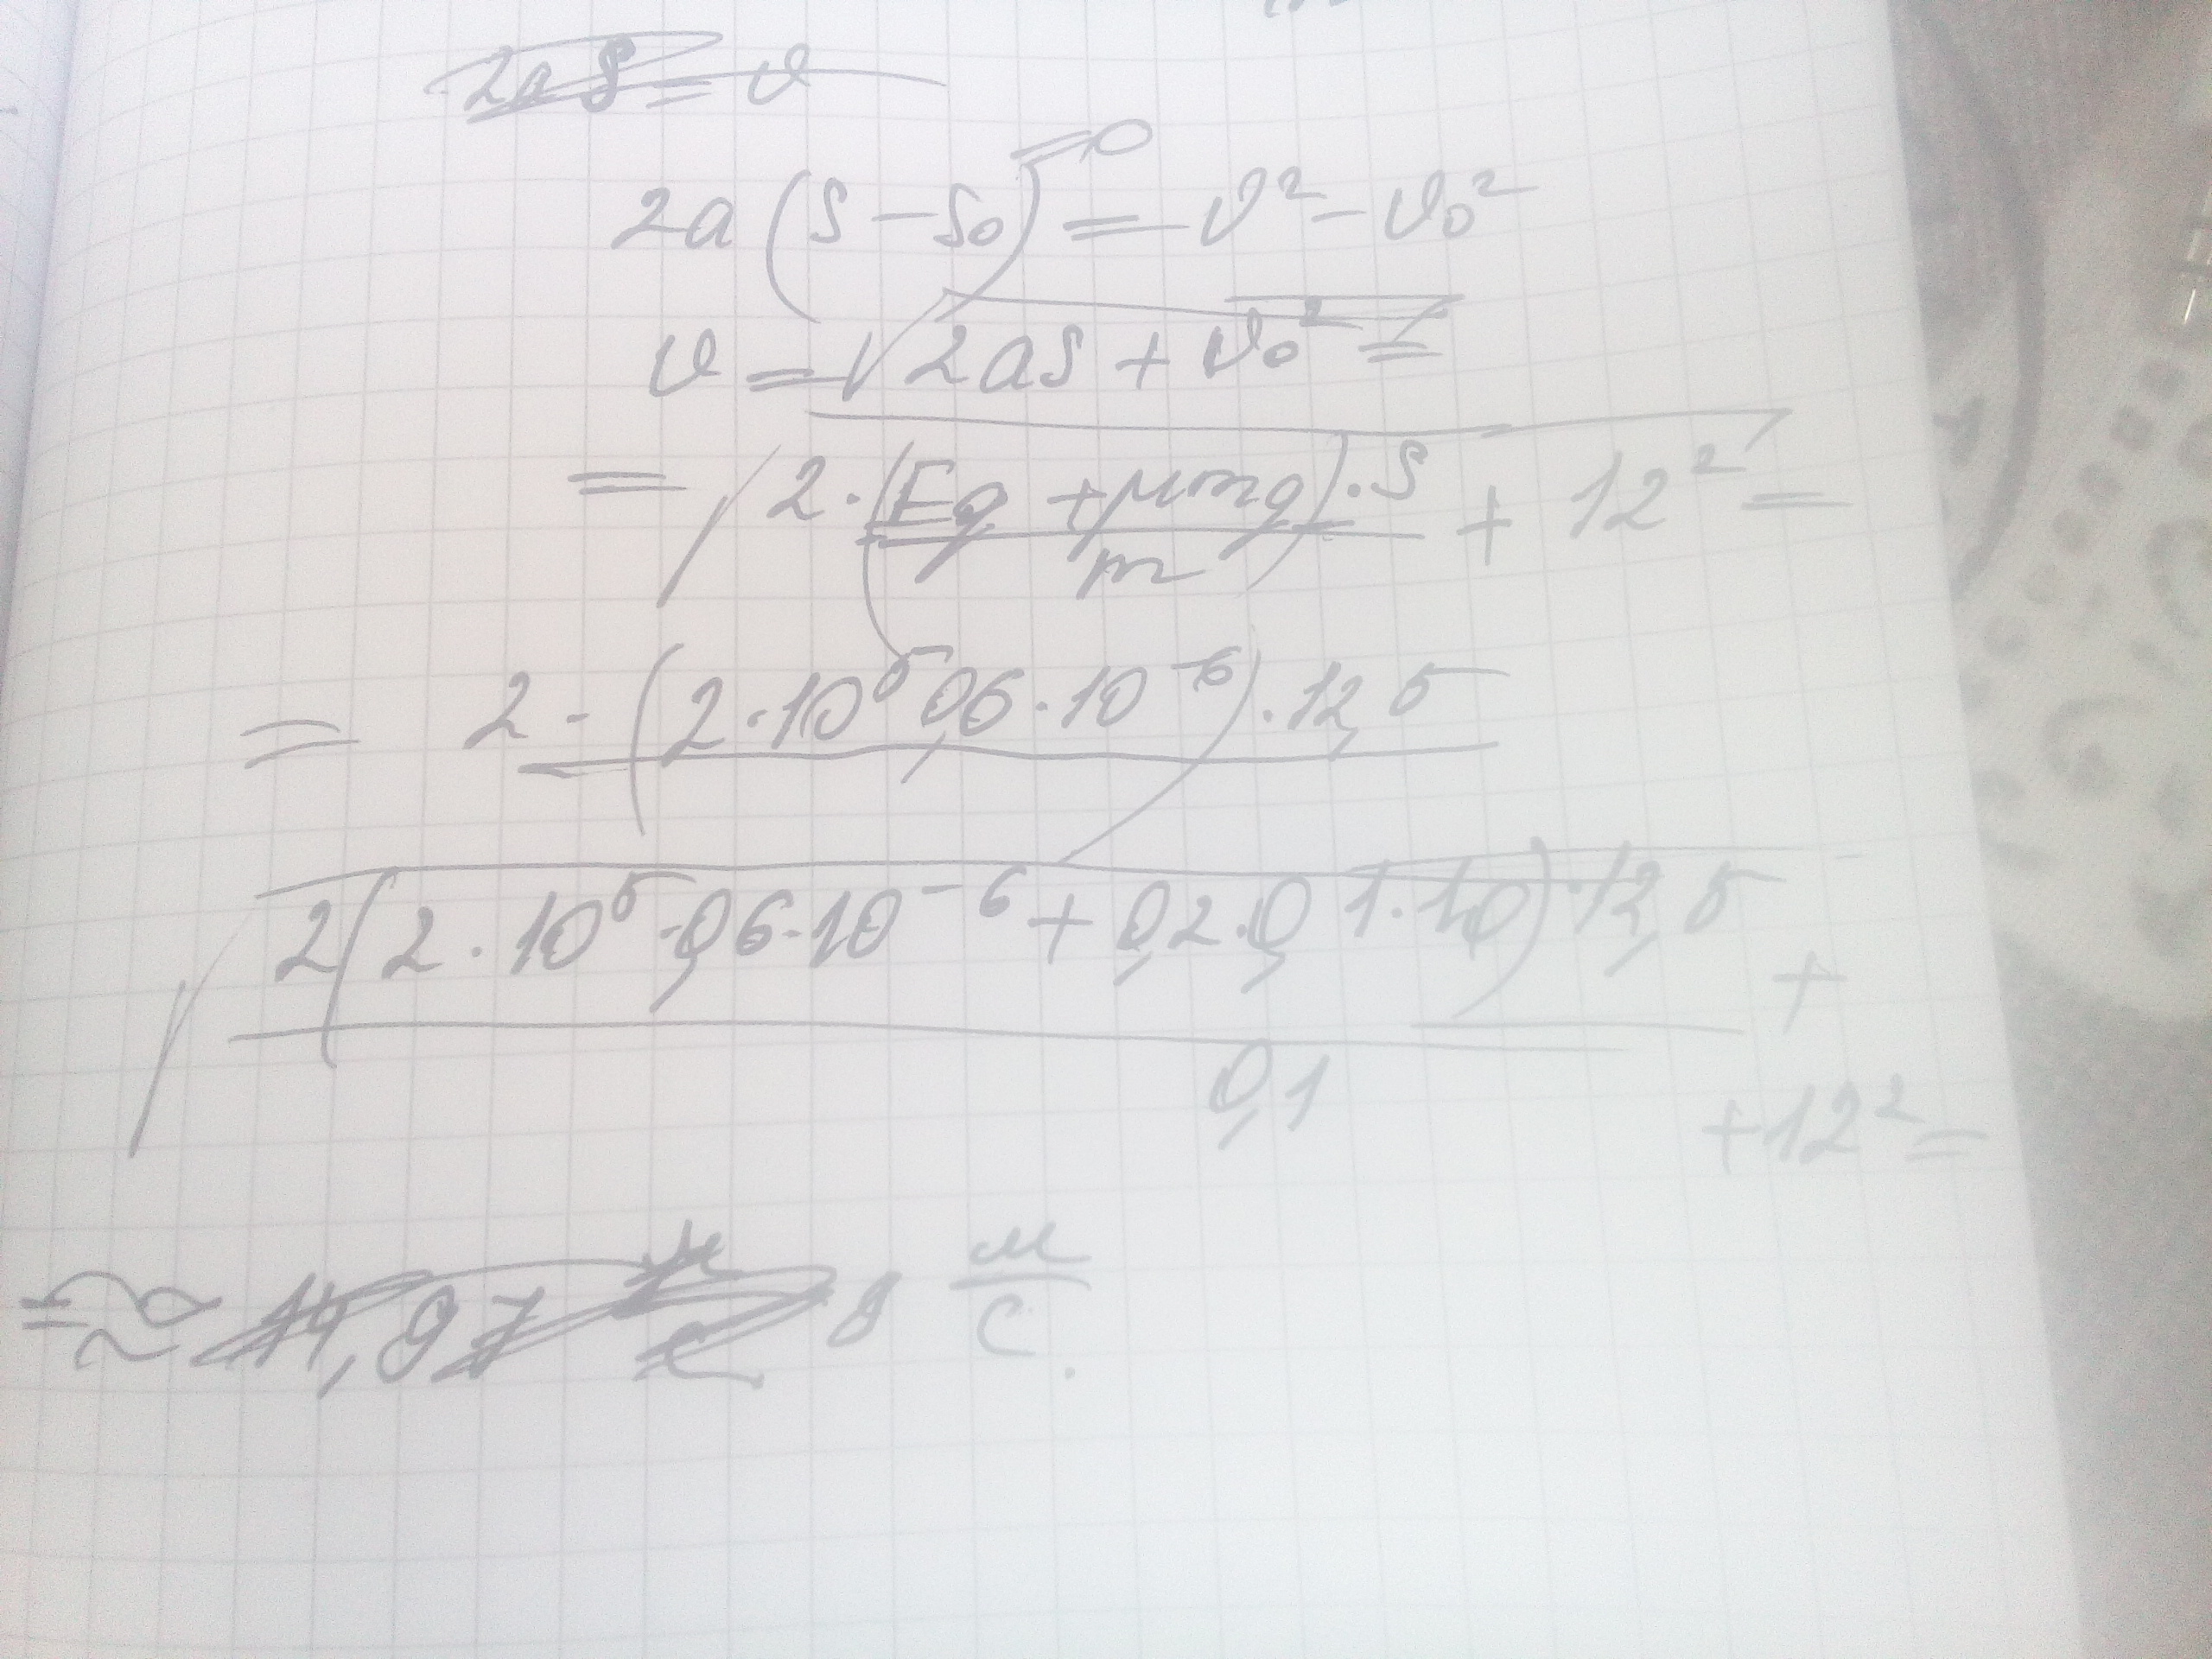 2aS = v
2a(S - S₀) = v² - v₀²
=0
v = √2aS + v₀² =
= √2·(Eq + μmg)·S/m + 12² =
= 2·(2·10⁵ 0,6·10⁻⁶)·12,5
√2(2·10⁵·0,6·10⁻⁶ + 0,2·0,1·10)·12,5/0,1 +
+12² =
= ≈ 14,97 м/с 8 м/с.